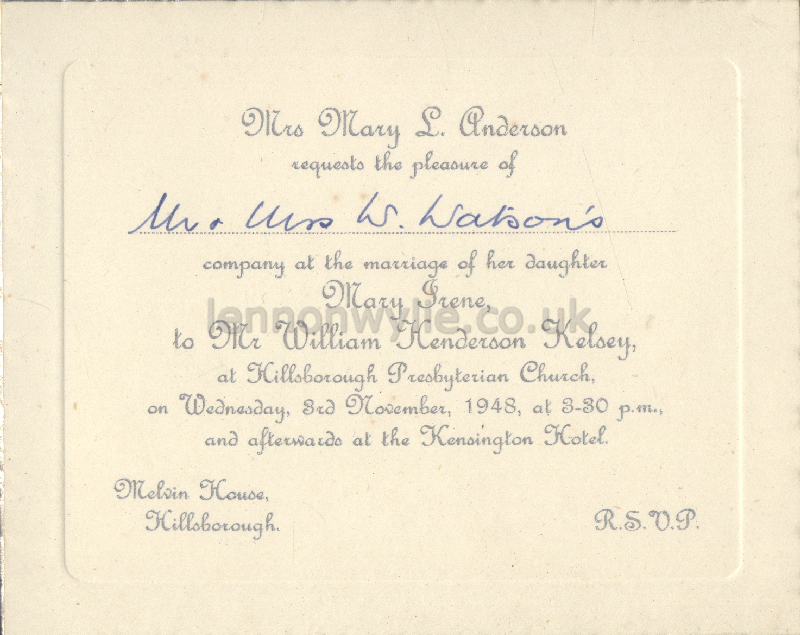 Mrs Mary L. Anderson
requests the pleasure of
Mr & Mrs W. Watson's
company at the marriage of her daughter
Mary Irene,
lennonwylie.co.uk
to Mr William Henderson Kelsey,
at Hillsborough Presbyterian Church,
on Wednesday, 3rd November, 1948, at 3-30 p.m.,
and afterwards at the Kensington Hotel.
Melvin House,
Hillsborough.
R.S.V.P.